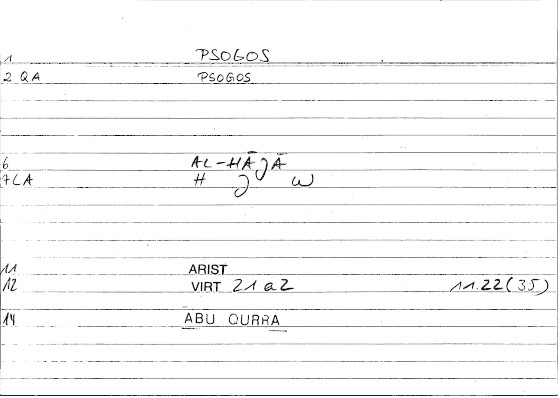 1 PSOGOS
2 QA PSOGOS
6 AL-HĀJĀ
7LA H J W
11 ARIST
12 VIRT 21 a2 11.22(35)
14 ABU QURRA